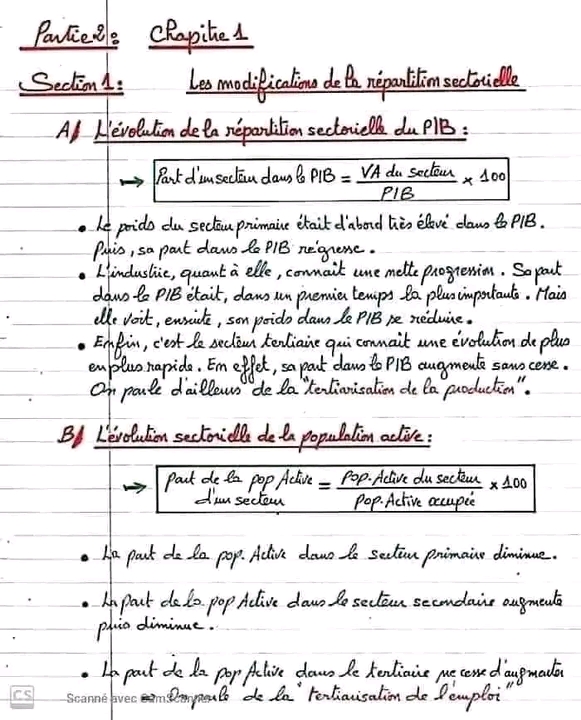 Partie 2 : Chapitre 1
Section 1 : Les modifications de la répartition sectorielle
A/ L'évolution de la répartition sectorielle du PIB :
→ Part d'un secteur dans le PIB = VA du secteur / PIB × 100
• Le poids du secteur primaire était d'abord très élevé dans le PIB.
Puis, sa part dans le PIB régresse.
• L'industrie, quant à elle, connait une nette progression. Sa part
dans le PIB était, dans un premier temps la plus importante. Mais
elle voit, ensuite, son poids dans le PIB se réduire.
• Enfin, c'est le secteur tertiaire qui connait une évolution de plus
en plus rapide. En effet, sa part dans le PIB augmente sans cesse.
On parle d'ailleurs de la "tertiarisation de la production".
B/ L'évolution sectorielle de la population active :
→ Part de la pop Active d'un secteur = Pop. Active du secteur / Pop. Active occupée × 100
• La part de la pop. Active dans le secteur primaire diminue.
• La part de la pop Active dans le secteur secondaire augmente
puis diminue.
• La part de la pop Active dans le tertiaire ne cesse d'augmenter
⇒ On parle de la "tertiarisation de l'emploi"
CS Scanné avec CamScanner